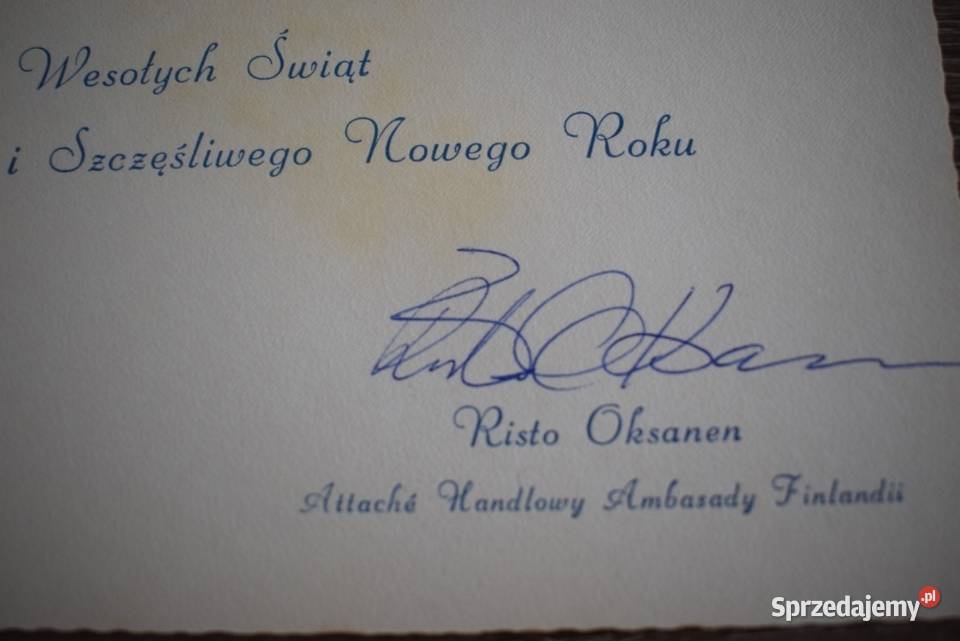 Wesołych Świąt
i Szczęśliwego Nowego Roku
Risto Oksanen
Attaché Handlowy Ambasady Finlandii
Sprzedajemy.pl